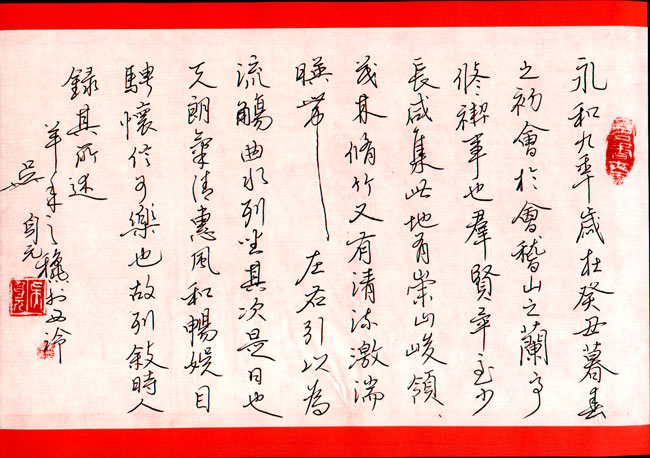 永和九年歲在癸丑暮春
之初會於會稽山之蘭亭
修禊事也羣賢畢至少
長咸集此地有崇山峻領
茂林脩竹又有清流激湍
暎帶左右引以為
流觴曲水列坐其次是日也
天朗氣清惠風和暢娛目
騁懷信可樂也故列敘時人
錄其所述
羊年之穐於西泠
吳